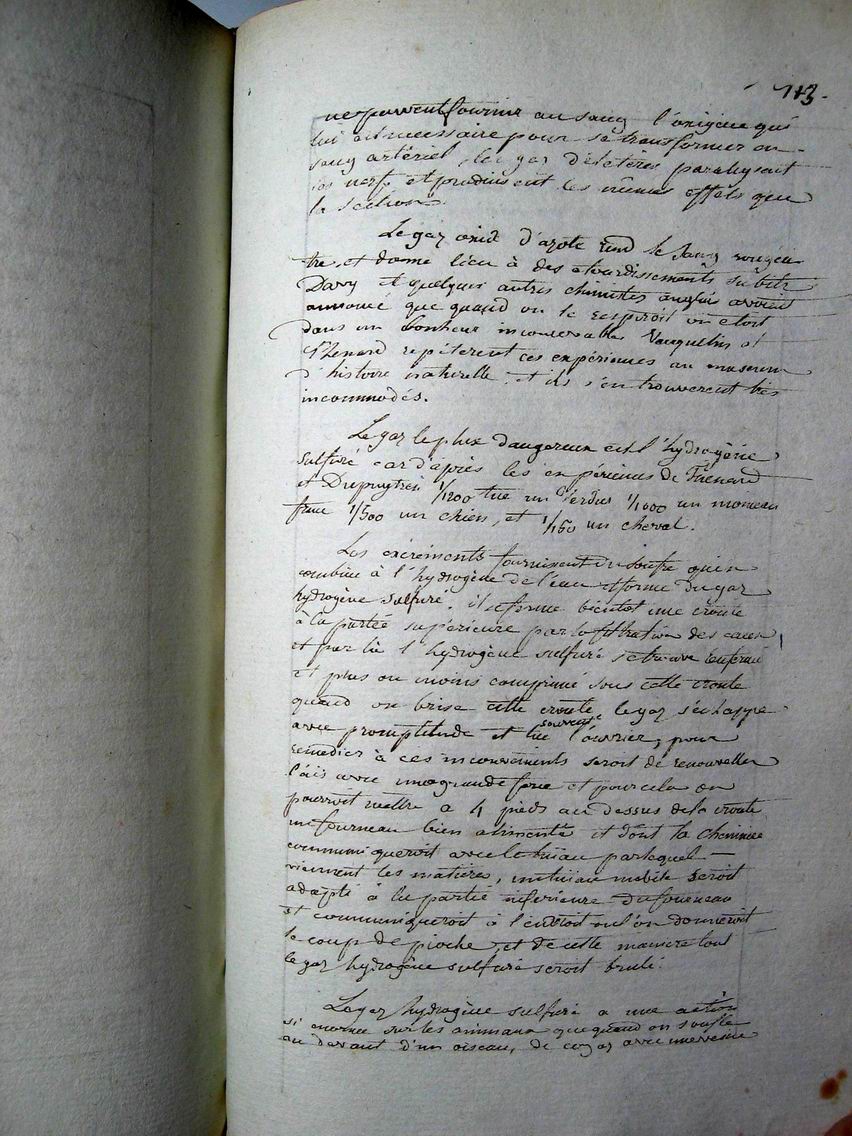 113.
ne peuvent fournir au sang l'oxigène qui
lui est necessaire pour se transformer en
sang artériel, les gaz déletères paralysent
les nerfs et produisent les mêmes effets que
la section.
Le gaz oxid d'azote rend le sang rougea
tre, et donne lieu à des étourdissements subits
Davy et quelques autres chimistes anglais avoient
annoncé que quand on le respiroit on etoit
dans un bonheur inconcevable Vauquelin et
Thenard repéterent ces expériences au museum
d'histoire naturelle et ils s'en trouverent très
incommodés.
Le gaz le plus dangereux est l'hydrogène
sulfuré car d'après les expériences de Thenard
et Dupuytren 1/1200 tue un Verdier 1/1000 un moineau
franc 1/500 un chien, et 1/150 un cheval.
Les excréments fournissent du soufre qui se
combine à l'hydrogène de l'eau et forme du gaz
hydrogène sulfuré. il se forme bientot une croute
à la partie supérieure par la filtration des eaux
et par là l'hydrogène sulfuré se trouve renfermé
et plus ou moins comprimé sous cette croute
quand on brise cette croute le gaz s'échappe
avec promptitude et tue souvent l'ouvrier, pour
remedier à ces inconvenients seroit de renouveller
l'air avec une grande force et pour cela on
pourroit mettre à 4 pieds au dessus de la croute
un fourneau bien alimenté et dont la cheminée
communiqueroit avec le tuiau par lequel
viennent les matières, un tuiau mobile seroit
adapté à la partie inférieure du fourneau
et communiqueroit à l'endroit ou l'on donneroit
le coup de pioche, et de cette manière tout
le gaz hydrogène sulfuré seroit brulé.
Le gaz hydrogène sulfuré a une action
si enorme sur les animaux que quand on souffle
au devant d'un oiseau, de ce gaz avec une vessie